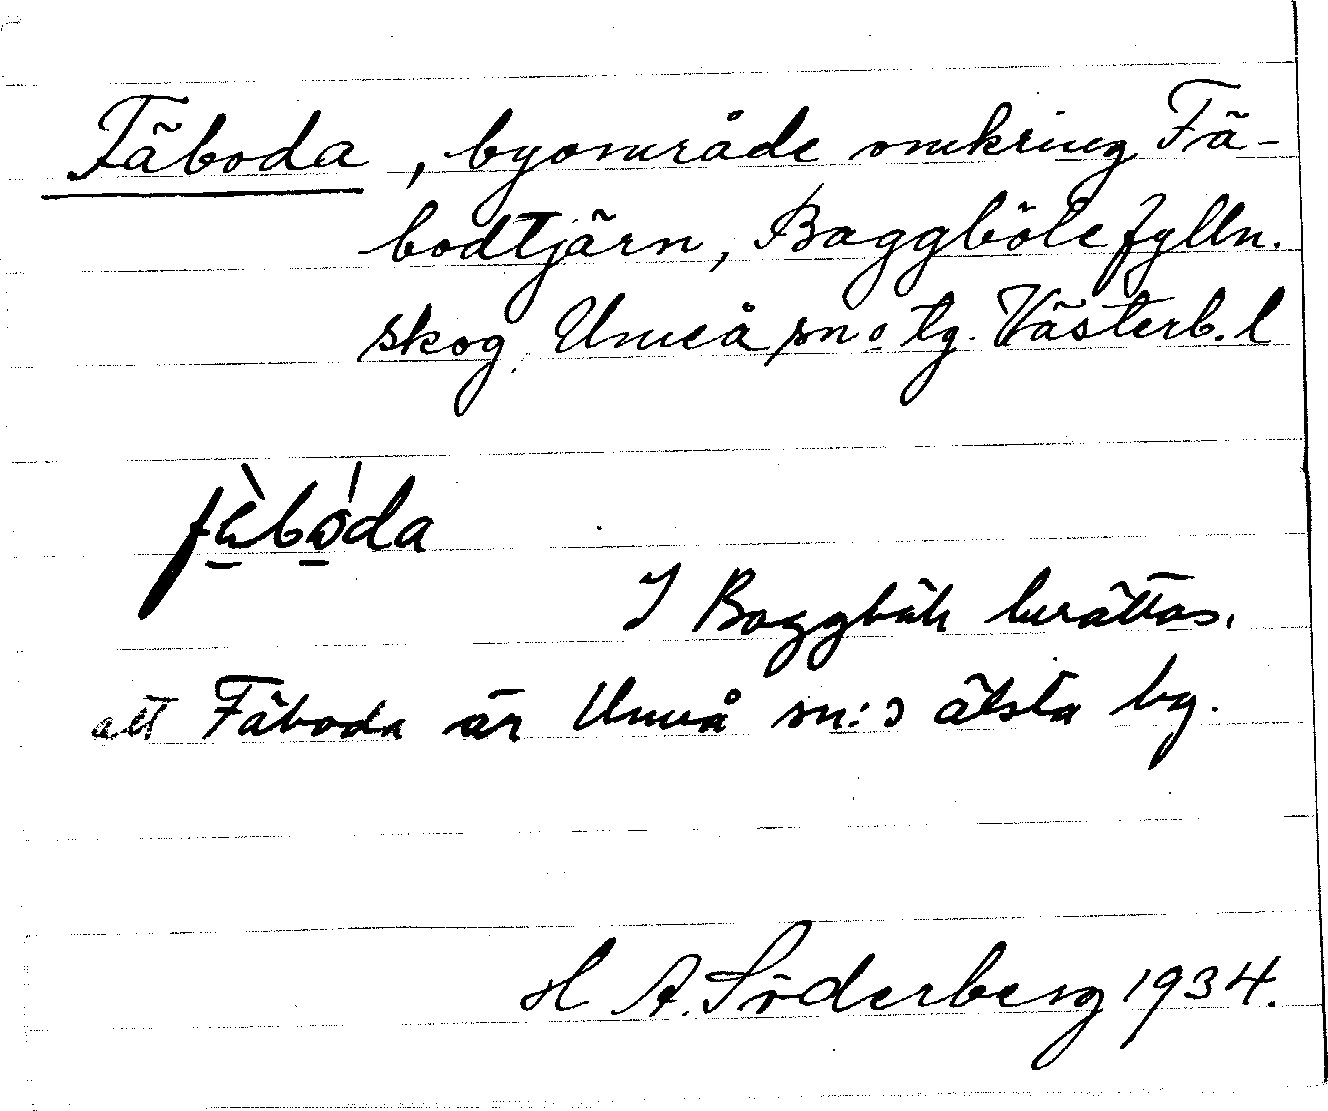 Fäboda, byområde omkring Fä-
bodtjärn, Baggböle fylln.
skog, Umeå sn o tg. Västerb. l
fä̀bó̱da
I Baggböle berättas,
att Fäboda är Umeå sn:s älsta by.
H A. Söderberg 1934.